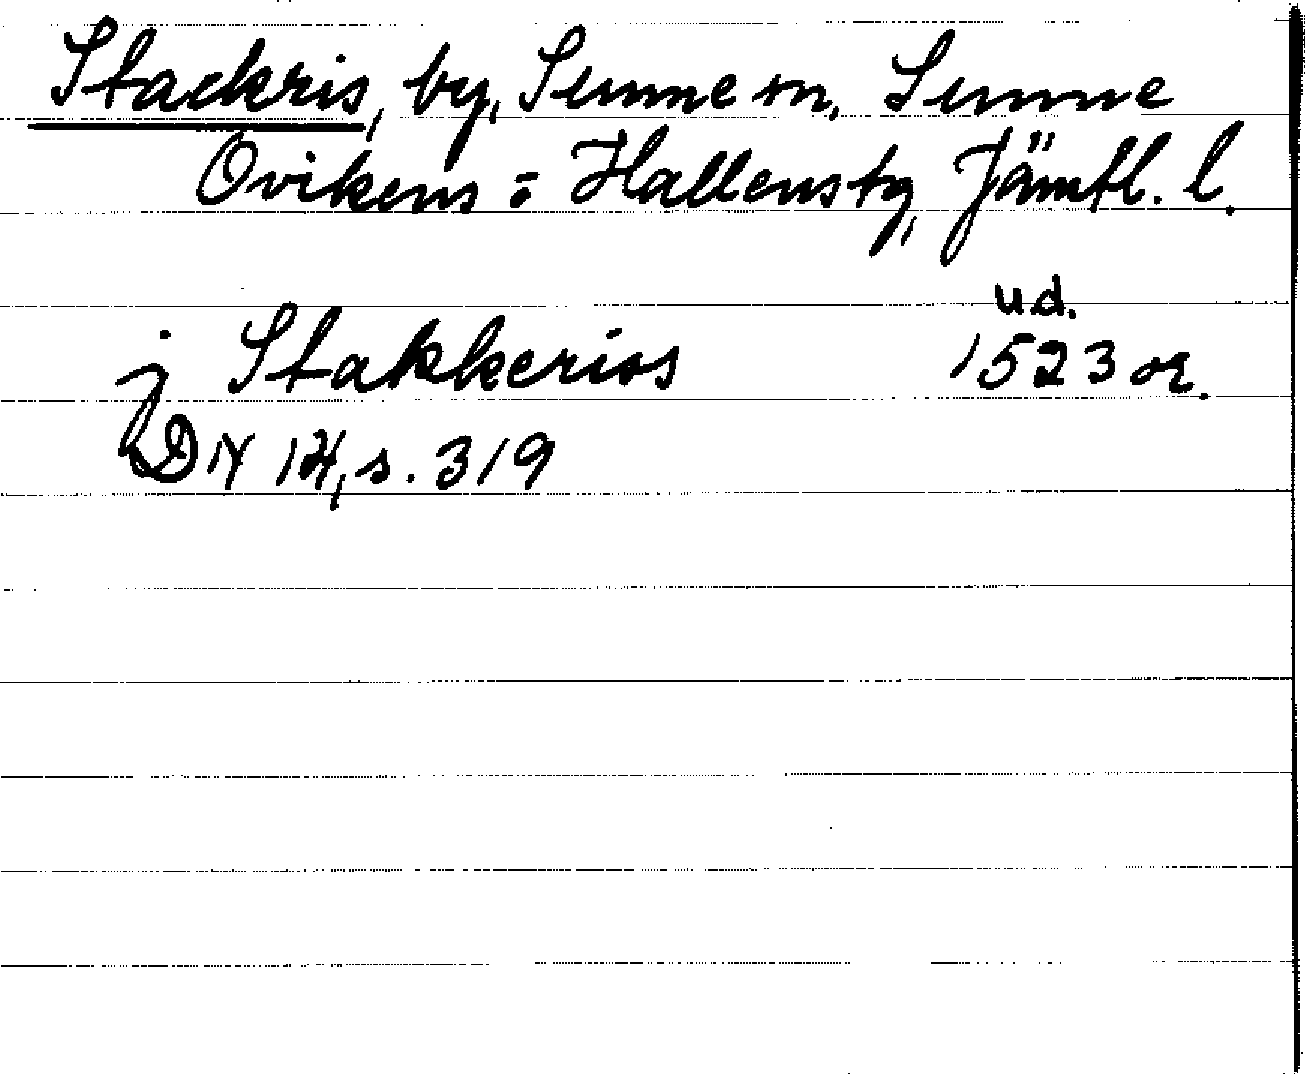 Stackris, by, Sunne sn, Sunne
Ovikens = Hallens tg, Jämtl. l.
ud.
j Stakkeriss 1523 or.
DN 14, s. 319